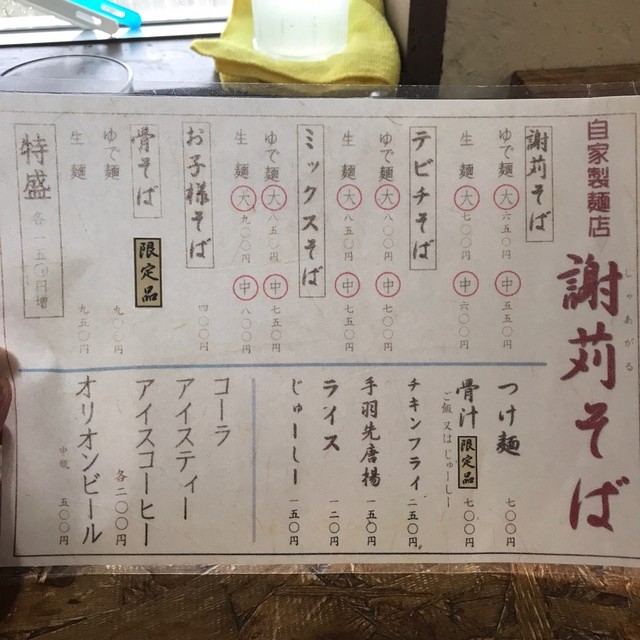 自家製麺店
謝苅そば
じゃあがる
謝苅そば
ゆで麺 大 六五〇円 中 五五〇円
生麺 大 七〇〇円 中 六〇〇円
テビチそば
ゆで麺 大 八〇〇円 中 七〇〇円
生麺 大 八五〇円 中 七五〇円
ミックスそば
ゆで麺 大 八五〇円 中 七五〇円
生麺 大 九〇〇円 中 八〇〇円
お子様そば
四〇〇円
骨そば 限定品
ゆで麺 九〇〇円
生麺 九五〇円
特盛 各一五〇円増
つけ麺 七〇〇円
骨汁 限定品 七〇〇円
ご飯又はじゅーしー
チキンフライ 二五〇円
手羽先唐揚 一五〇円
ライス 一二〇円
じゅーしー 一五〇円
コーラ
アイスティー
アイスコーヒー
各二〇〇円
オリオンビール
中瓶 五〇〇円